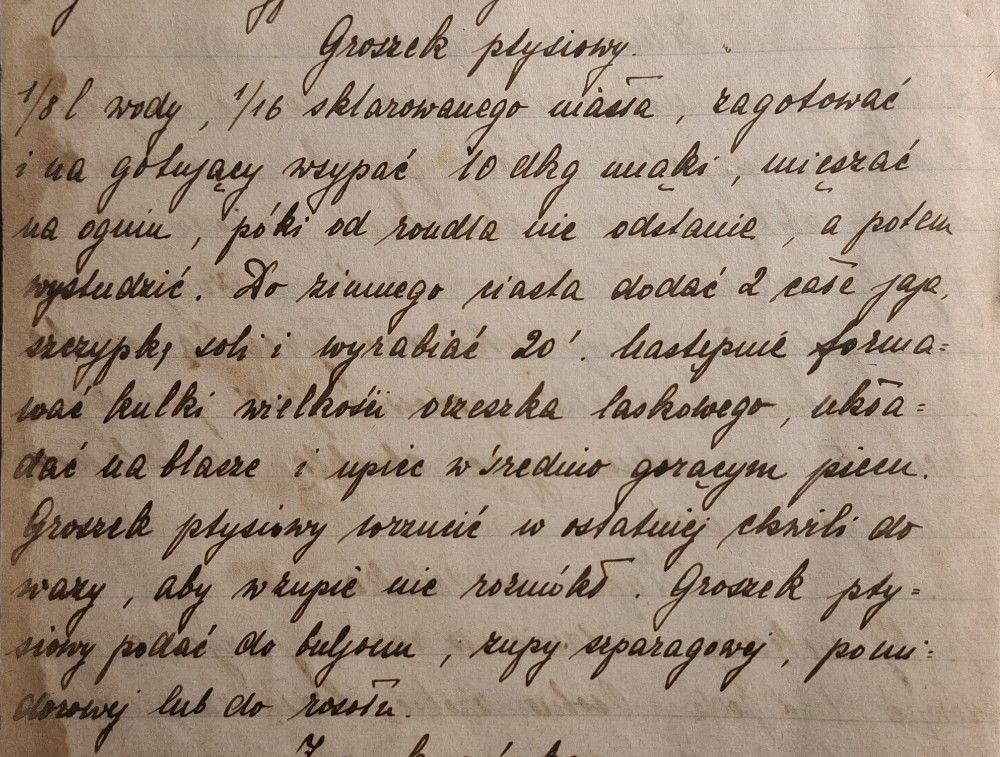 Groszek ptysiowy.
1/8 l wody, 1/16 sklarowanego masła, zagotować
i na gotujący wsypać 10 dkg mąki, mięszać
na ogniu, póki od rondla nie odstanie, a potem
wystudzić. Do zimnego ciasta dodać 2 całe jaja,
szczyptę soli i wyrabiać 20'. Następnie formo=
wać kulki wielkości orzeszka laskowego, ukła=
dać na blasze i upiec w średnio gorącym piecu.
Groszek ptysiowy wrzucić w ostatniej chwili do
wazy, aby w zupie nie rozmókł. Groszek pty=
siowy podać do buljonu, zupy szparagowej, pomi=
dorowej lub do rosołu.